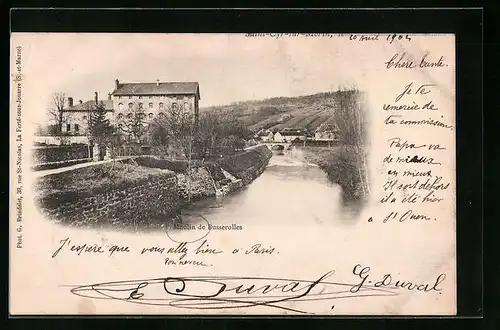 Saint-Cyr-sur-Morin, le 20 avril 1904
Chère tante.
Je te
remercie de
ta commission.
Papa va
de mieux
en mieux.
Il sort dehors
il a été hier
à St Ouen.
Moulin de Busserolles
J'espère que vous allez bien à Paris.
Bonneveu.
E. Duval
G. Duval
Phot. G. Brindelet, 30, rue St-Nicolas, La Ferté-sous-Jouarre (S.-et-Marne)